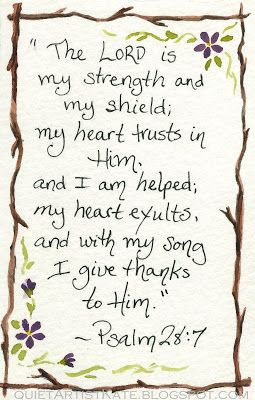 "The LORD is
my strength and
my shield;
my heart trusts in
Him,
and I am helped;
my heart exults,
and with my song
I give thanks
to Him."
~Psalm 28:7
QUIETARTISTKATE.BLOGSPOT.COM